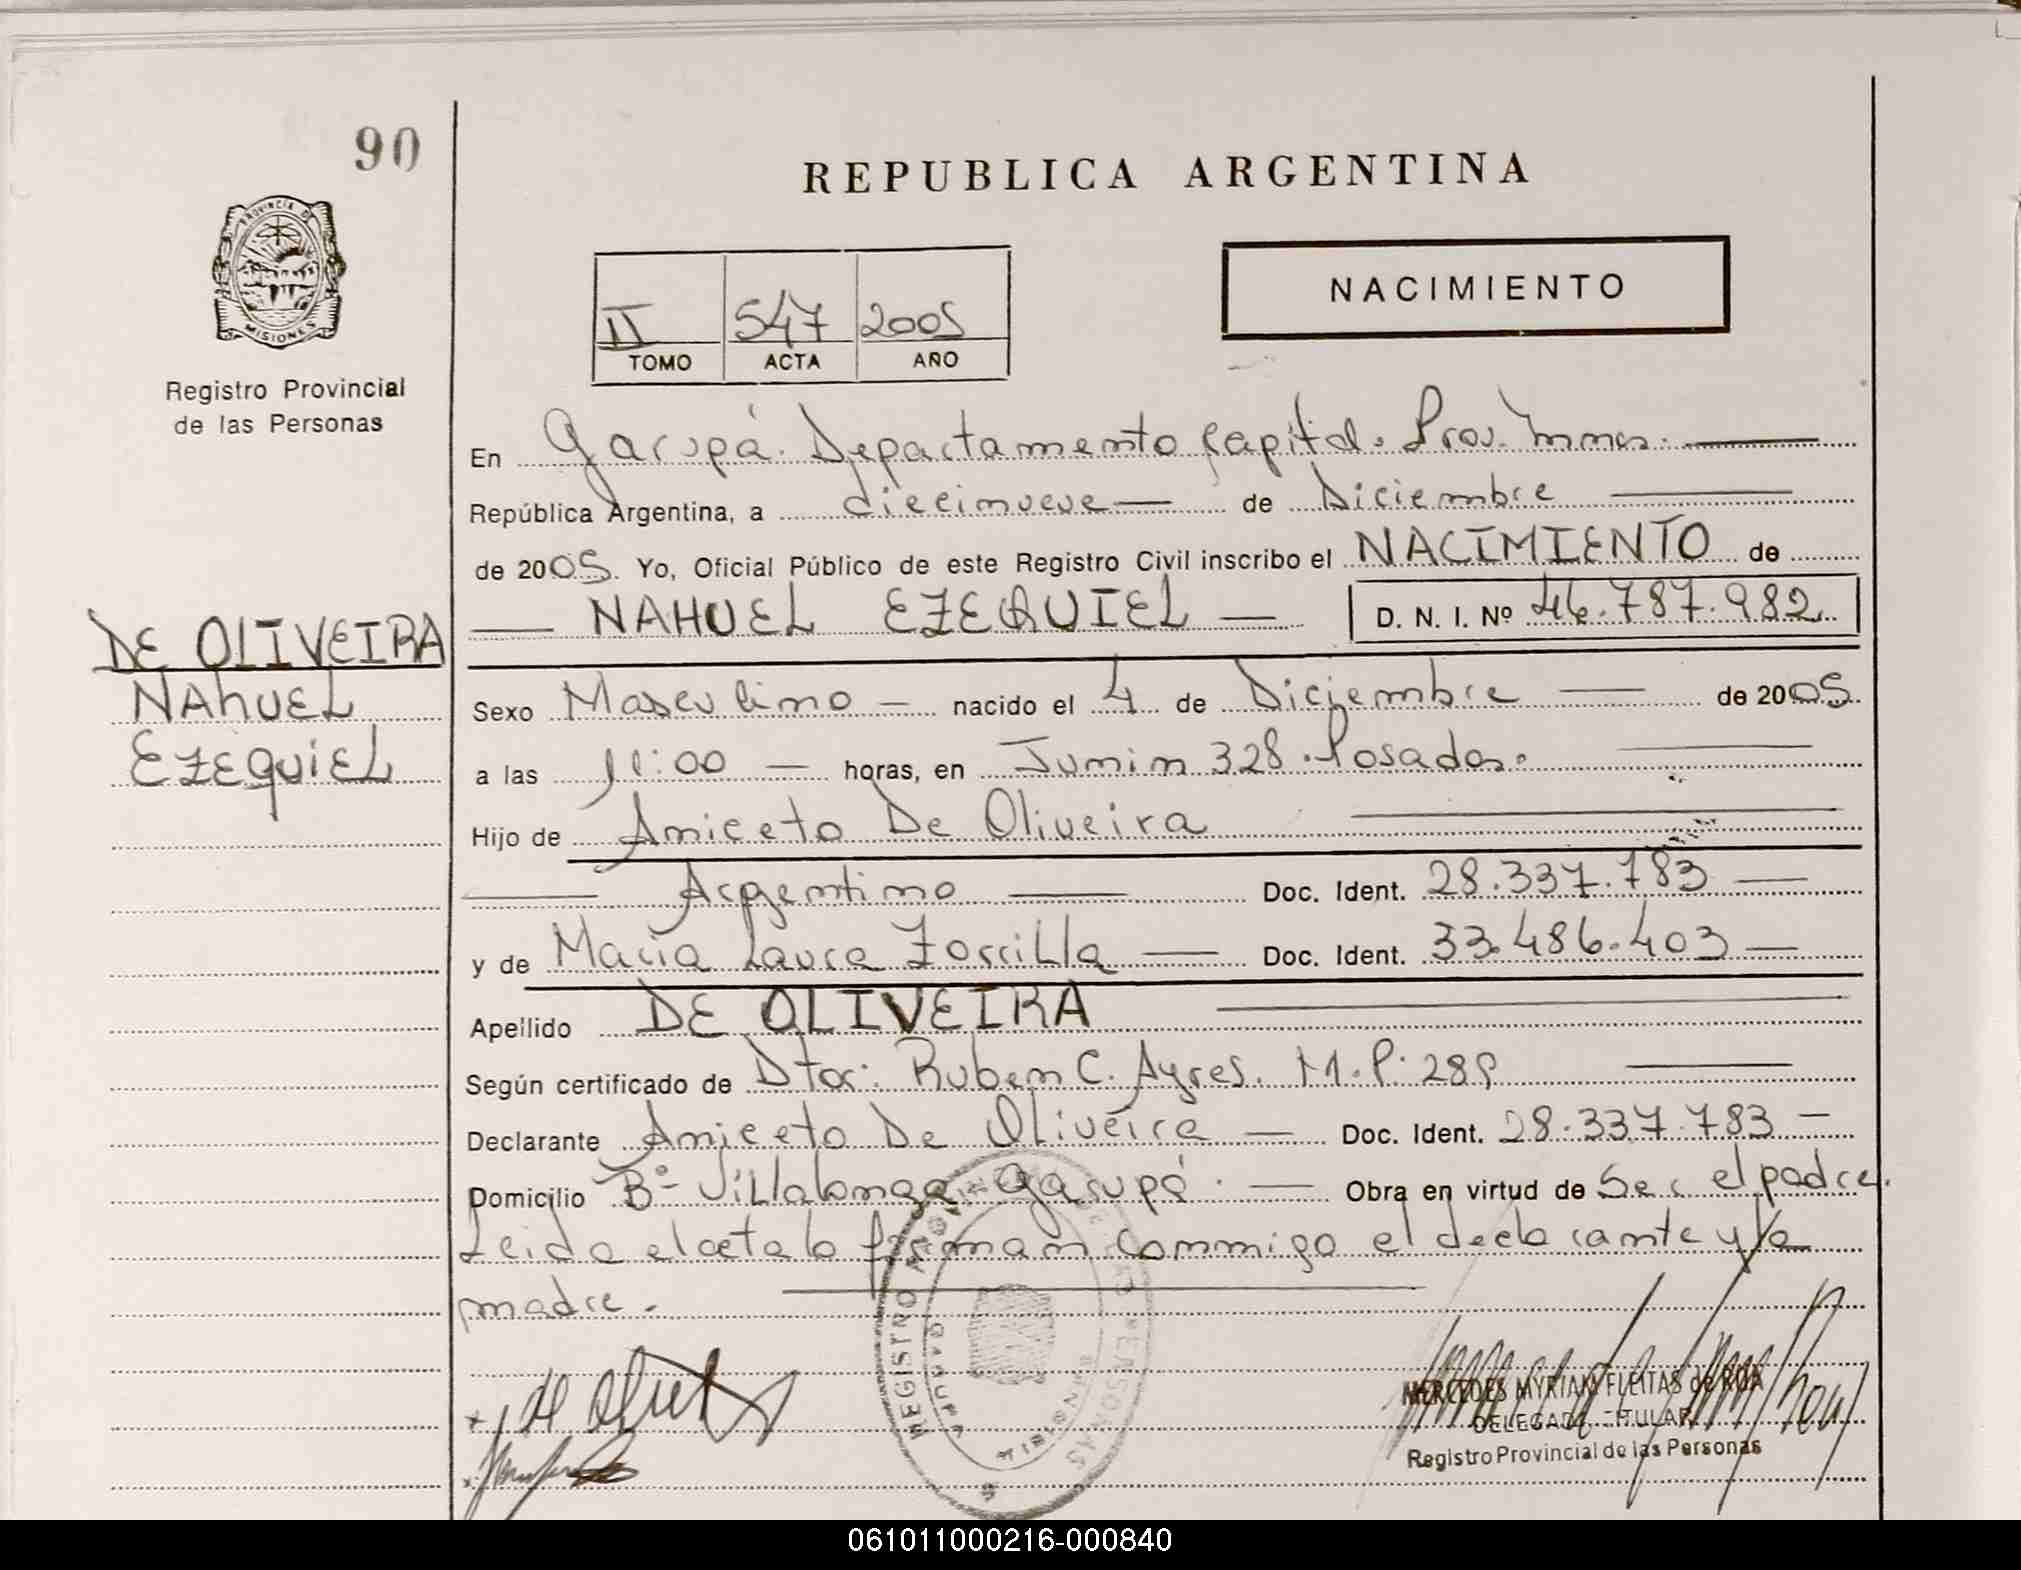 90
REPUBLICA ARGENTINA
PROVINCIA DE
MISIONES
Registro Provincial
de las Personas
II 547 2005
TOMO ACTA AÑO
NACIMIENTO
En Garupá. Departamento Capital. Prov. Mnes.
República Argentina, a diecinueve de Diciembre
de 2005. Yo, Oficial Público de este Registro Civil inscribo el NACIMIENTO de
NAHUEL EZEQUIEL D. N. I. Nº 46.787.982
DE OLIVEIRA
NAhUEL
EZEquiEL
Sexo Masculino nacido el 4 de Diciembre de 2005
a las 11:00 horas, en Junin 328. Posadas.
Hijo de Aniceto De Oliveira
Argentino Doc. Ident. 28.337.783
y de María Laura Zorrilla Doc. Ident. 33.486.403
Apellido DE OLIVEIRA
Según certificado de Dtor: Ruben C. Ayres. M.P. 289
Declarante Aniceto De Oliveira Doc. Ident. 28.337.783
Domicilio Bº Villalonga Garupá. Obra en virtud de Ser el padre.
Leida el acta la firman conmigo el declarante y la
madre.
REGISTRO PROVINCIAL DE LAS PERSONAS
GARUPA
MISIONES
MERCEDES MYRIAM FLEITAS de ROA
DELEGADA TITULAR
Registro Provincial de las Personas
061011000216-000840